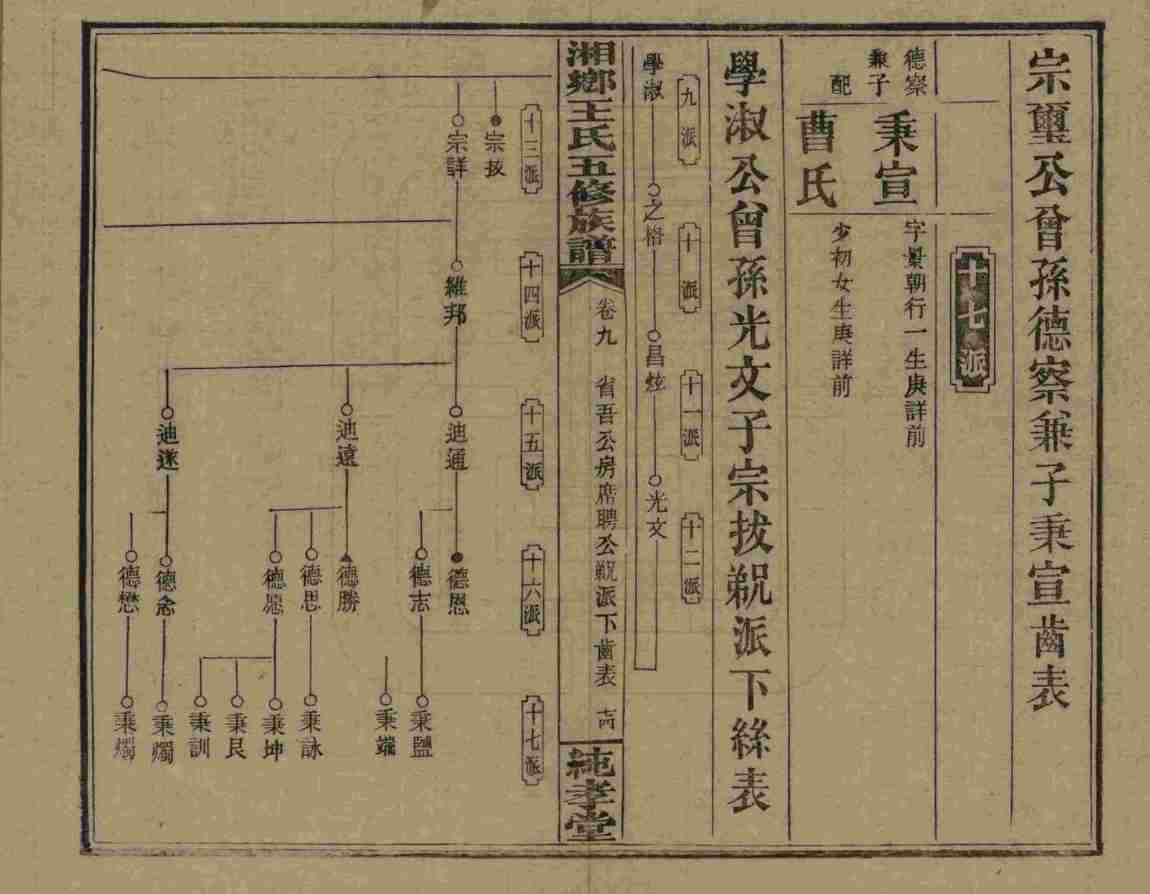 宗璽公曾孫德察兼子秉宣齒表
十七派
德察
兼子
秉宣
字景朝行一生庚詳前
配
曹氏
少初女生庚詳前
學淑公曾孫光文子宗拔覜派下絲表
九派
十派
十一派
十二派
學淑
之格
昌炫
光文
湘鄉王氏五修族譜
卷九
省吾公房席聘公覜派下齒表
純孝堂
十三派
十四派
十五派
十六派
十七派
宗拔
宗詳
維邦
迪通
迪遠
迪遂
德恩
德志
德勝
德思
德愿
德念
德懋
秉鹽
秉端
秉詠
秉坤
秉艮
秉訓
秉燭
秉燭